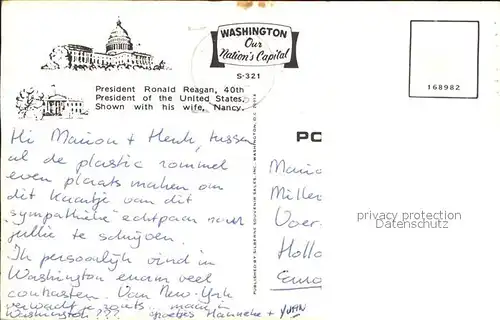 WASHINGTON
Our
Nation's Capital
S-321
168982
President Ronald Reagan, 40th
President of the United States.
Shown with his wife, Nancy.
PUBLISHED BY SILBERNE SOUVENIR SALES, INC., WASHINGTON, D.C. 20018
PO
Hi Marion + Henk, tussen
al de plastic rommel
even plaats maken om
dit kaartje van dit
"sympathieke" echtpaar naar
jullie te schrijven.
Ik persoonlijk vind in
Washington enorm veel
contrasten. Van New-York
verwacht je zoiets, maar in
Washington??? groetjes Hanneke +
Mario
Miller
Voer
Hollo
Euro
privacy protection
Datenschutz